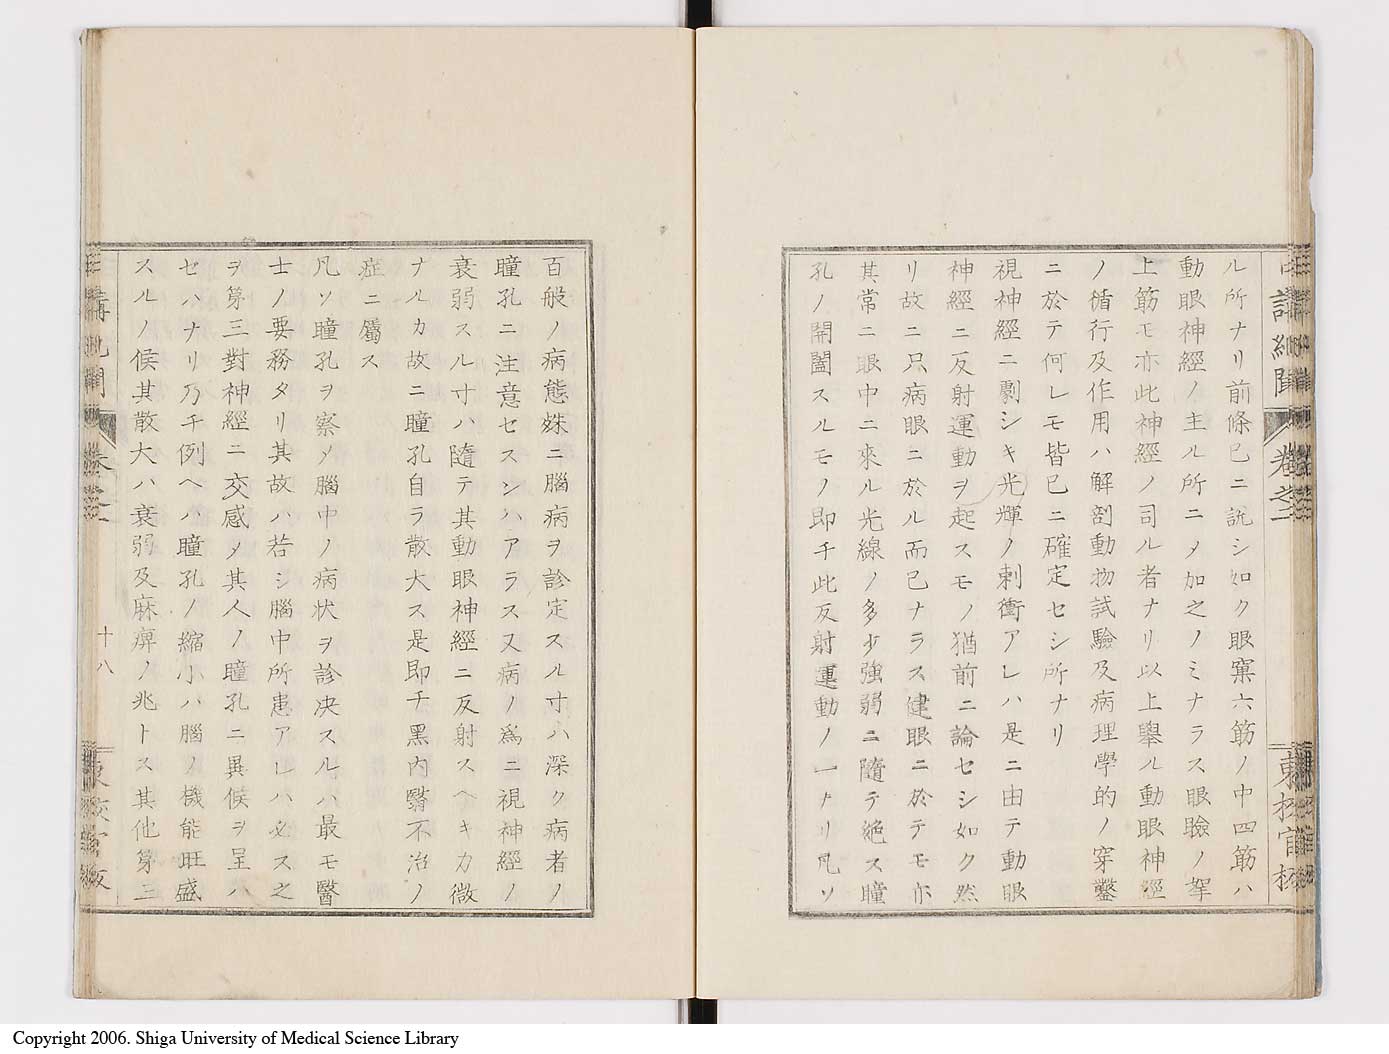 ル所ナリ前條已ニ説シ如ク眼窠六筋ノ中四筋ハ
動眼神經ノ主ル所ニメ加之ノミナラス眼瞼ノ挙
上筋モ亦此神經ノ司ル者ナリ以上擧ル動眼神經
ノ循行及作用ハ解剖動物試驗及病理學的ノ穿鑿
ニ於テ何レモ皆已ニ確定セシ所ナリ
視神經ニ劇シキ光輝ノ刺衝アレハ是ニ由テ動眼
神經ニ反射運動ヲ起スモノ猶前ニ論セシ如ク然
リ故ニ只病眼ニ於ル而已ナラス健眼ニ於テモ亦
其常ニ眼中ニ來ル光線ノ多少強弱ニ隨テ絶ス瞳
孔ノ開闔スルモノ即チ此反射運動ノ一ナリ凡ソ
百般ノ病態殊ニ腦病ヲ診定スル寸ハ深ク病者ノ
瞳孔ニ注意セスンハアラス又病ノ爲ニ視神經ノ
衰弱スル寸ハ隨テ其動眼神經ニ反射スヘキカ微
ナルカ故ニ瞳孔自ラ散大ス是即チ黑内翳不治ノ
症ニ屬ス
凡ソ瞳孔ヲ察メ腦中ノ病状ヲ診决スルハ最モ醫
士ノ要務タリ其故ハ若シ腦中所患アレハ必ス之
ヲ第三對神經ニ交感メ其人ノ瞳孔ニ異候ヲ呈ハ
セハナリ乃チ例ヘハ瞳孔ノ縮小ハ腦ノ機能旺盛
スルノ候其散大ハ衰弱及麻痺ノ兆トス其他第三
十八
Copyright 2006. Shiga University of Medical Science Library